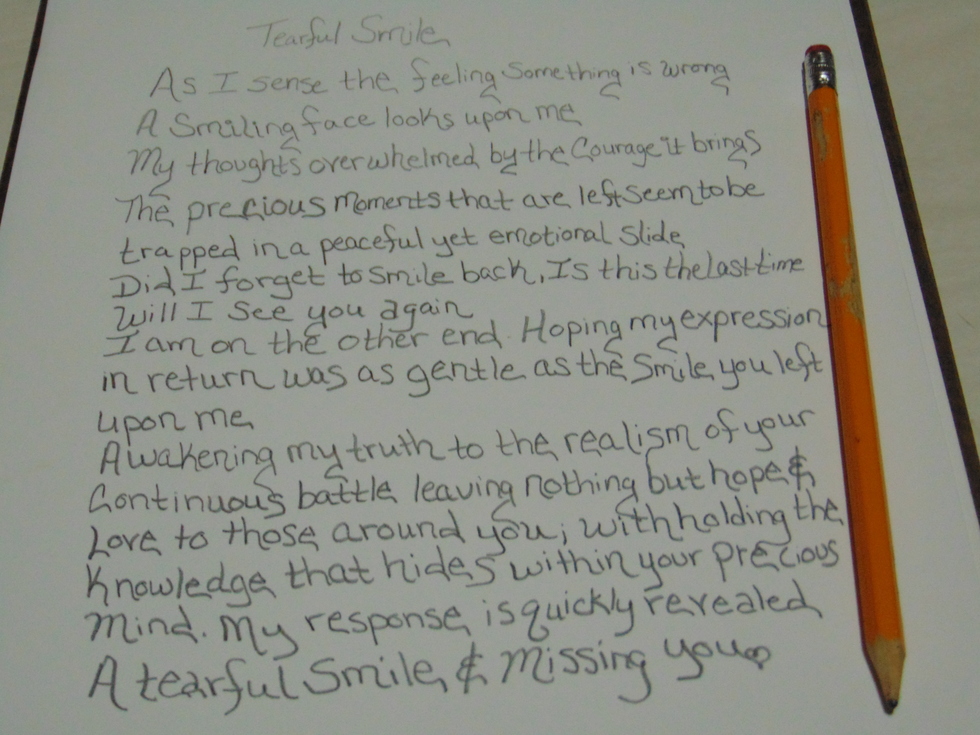 Tearful Smile
As I sense the feeling something is wrong
A Smiling face looks upon me
My thoughts overwhelmed by the Courage it brings
The precious moments that are left seem to be
trapped in a peaceful yet emotional Slide
Did I forget to smile back, Is this the last time
Will I See you again
I am on the other end. Hoping my expression
in return was as gentle as the Smile you left
upon me
Awakening my truth to the realism of your
Continuous battle leaving nothing but hope &
Love to those around you; withholding the
Knowledge that hides within your precious
Mind. My response is quickly revealed
A tearful Smile & Missing you♡